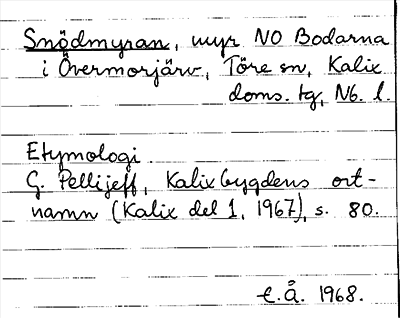 Snödmyran, myr NO Bodarna
i Övermorjärv, Töre sn, Kalix
doms. tg, Nb. l.
Etymologi
G. Pellijeff, Kalixbygdens ort-
namn (Kalix del 1, 1967), s. 80.
E.Å. 1968.